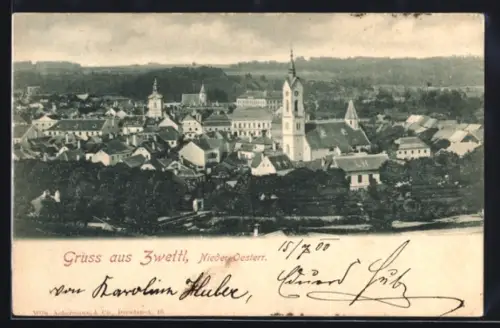 Gruss aus Zwettl, Nieder-Oesterr.
15/7 00
von Karoline Huber, Eduard Huber